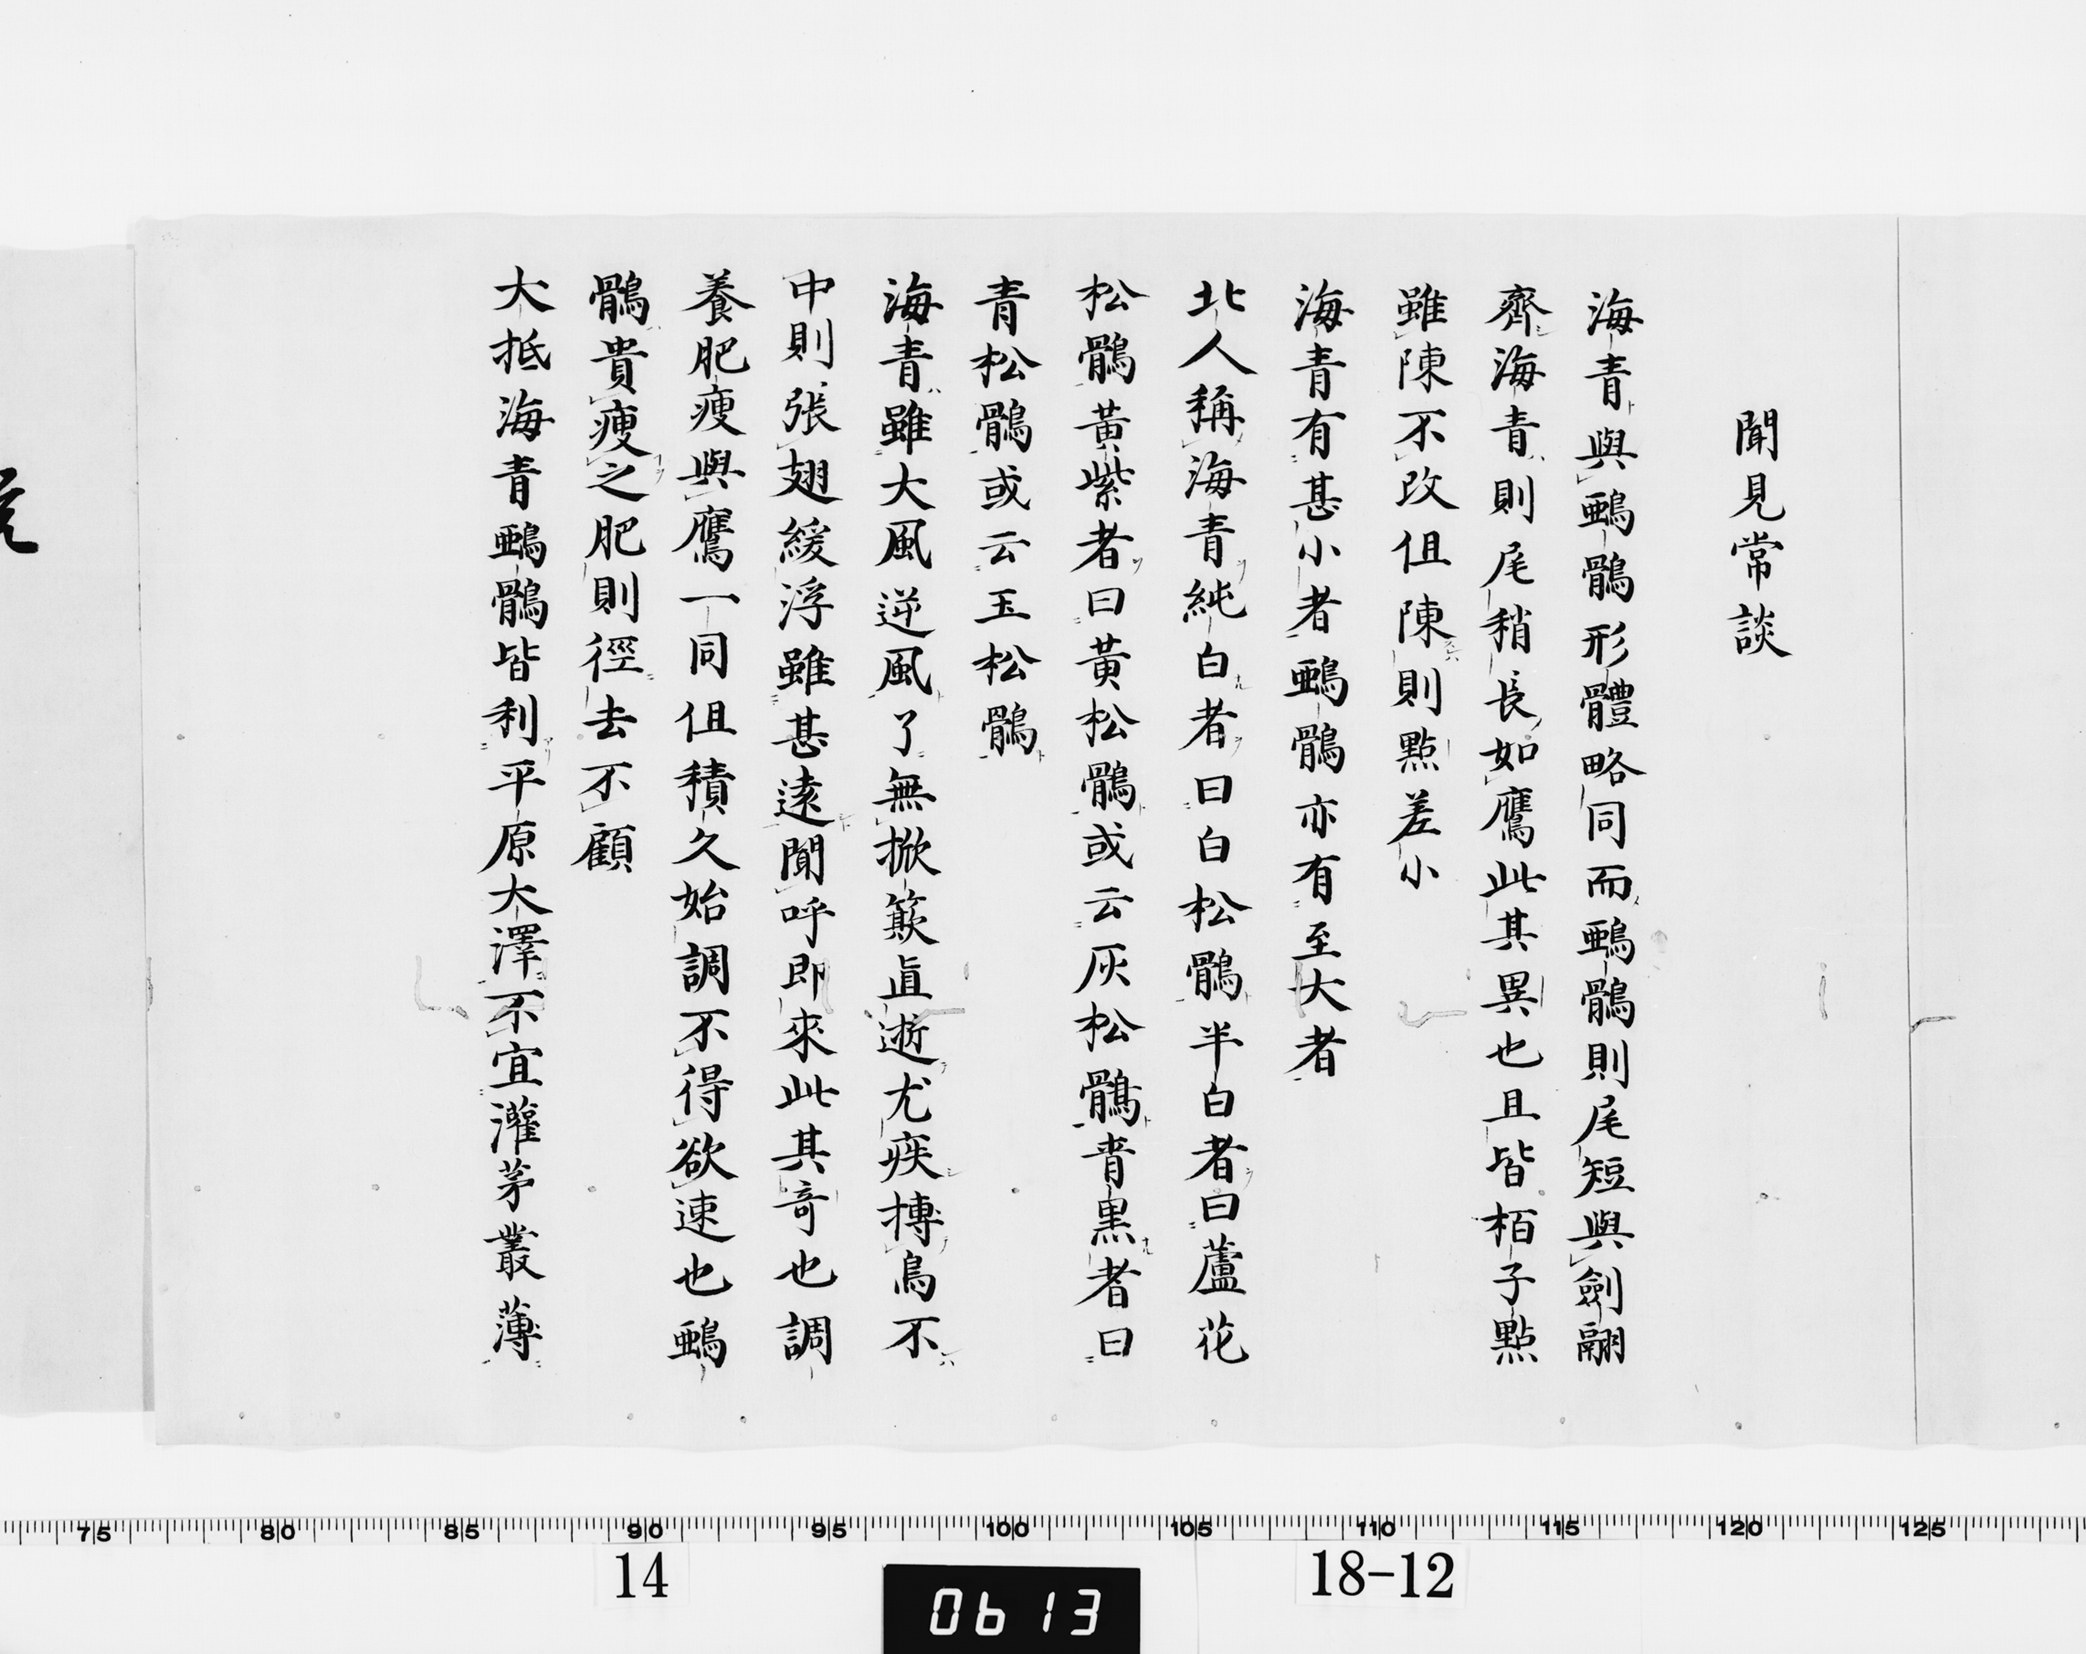 聞見常談
海青與鵶鶻形體略同而鵶鶻則尾短與劍翮
齊海青則尾稍長如鷹此其異也且皆栢子點
雖陳不改但陳則點差小
海青有甚小者鵶鶻亦有至大者
北人稱海青純白者曰白松鶻半白者曰蘆花
松鶻黃紫者曰黃松鶻或云灰松鶻青黑者曰
青松鶻或云玉松鶻
海青雖大風逆風了無掀簸直逝尤疾摶鳥不
中則張翅緩浮雖甚遠聞呼即來此其奇也調
養肥瘦與鷹一同但積久始調不得欲速也鵶
鶻貴瘦之肥則徑去不顧
大抵海青鵶鶻皆利平原大澤不宜灌茅叢薄
75 80 85 90 95 100 105 110 115 120 125
14
0613
18-12